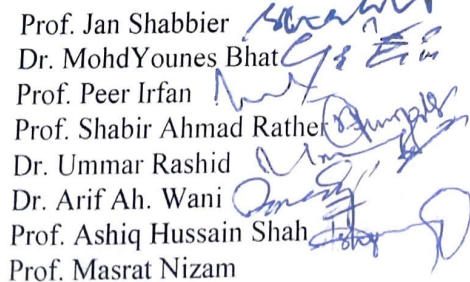 Prof. Jan Shabbier
Dr. MohdYounes Bhat
Prof. Peer Irfan
Prof. Shabir Ahmad Rather
Dr. Ummar Rashid
Dr. Arif Ah. Wani
Prof. Ashiq Hussain Shah
Prof. Masrat Nizam